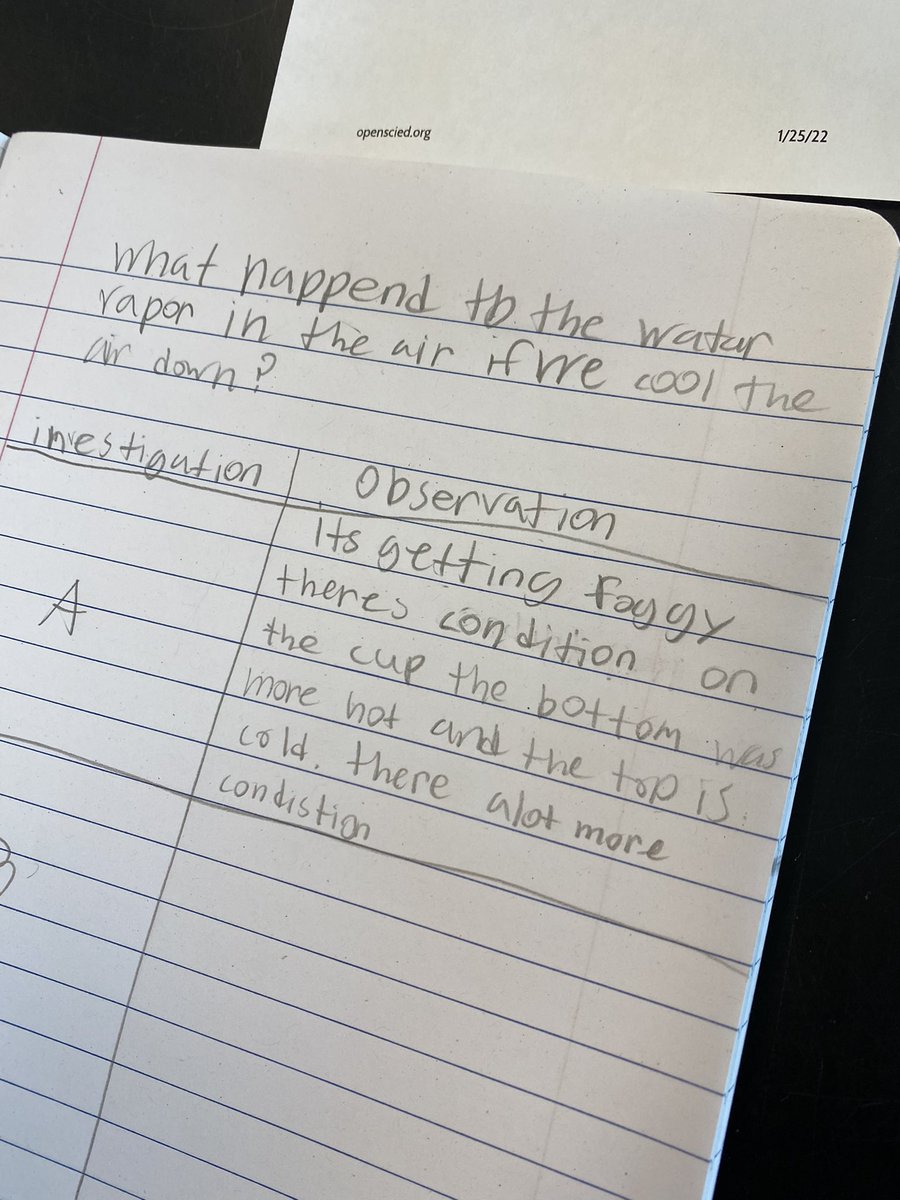 openscied.org 1/25/22
what happend to the watar
vapor in the air if we cool the
air down?
investigation Observation
Its getting foggy
theres condition on
A
the cup the bottom was
more hot and the top is
cold. there alot more
condistion
B